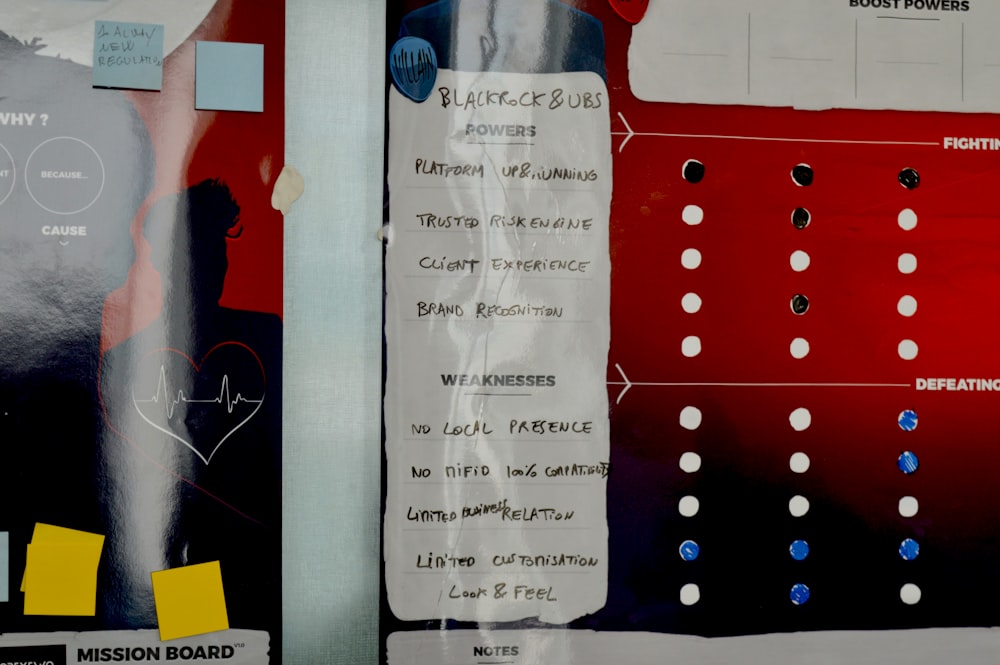 NEW
REGULATION
WHY ?
BECAUSE...
CAUSE
MISSION BOARD
VILLAIN
BLACKROCK & UBS
POWERS
PLATFORM UP & RUNNING
TRUSTED RISK ENGINE
CLIENT EXPERIENCE
BRAND RECOGNITION
WEAKNESSES
NO LOCAL PRESENCE
NO MIFID 100% COMPATIBLE
LIMITED BUSINESS RELATION
LIMITED CUSTOMISATION
LOOK & FEEL
NOTES
BOOST POWERS
FIGHTIN
DEFEATING